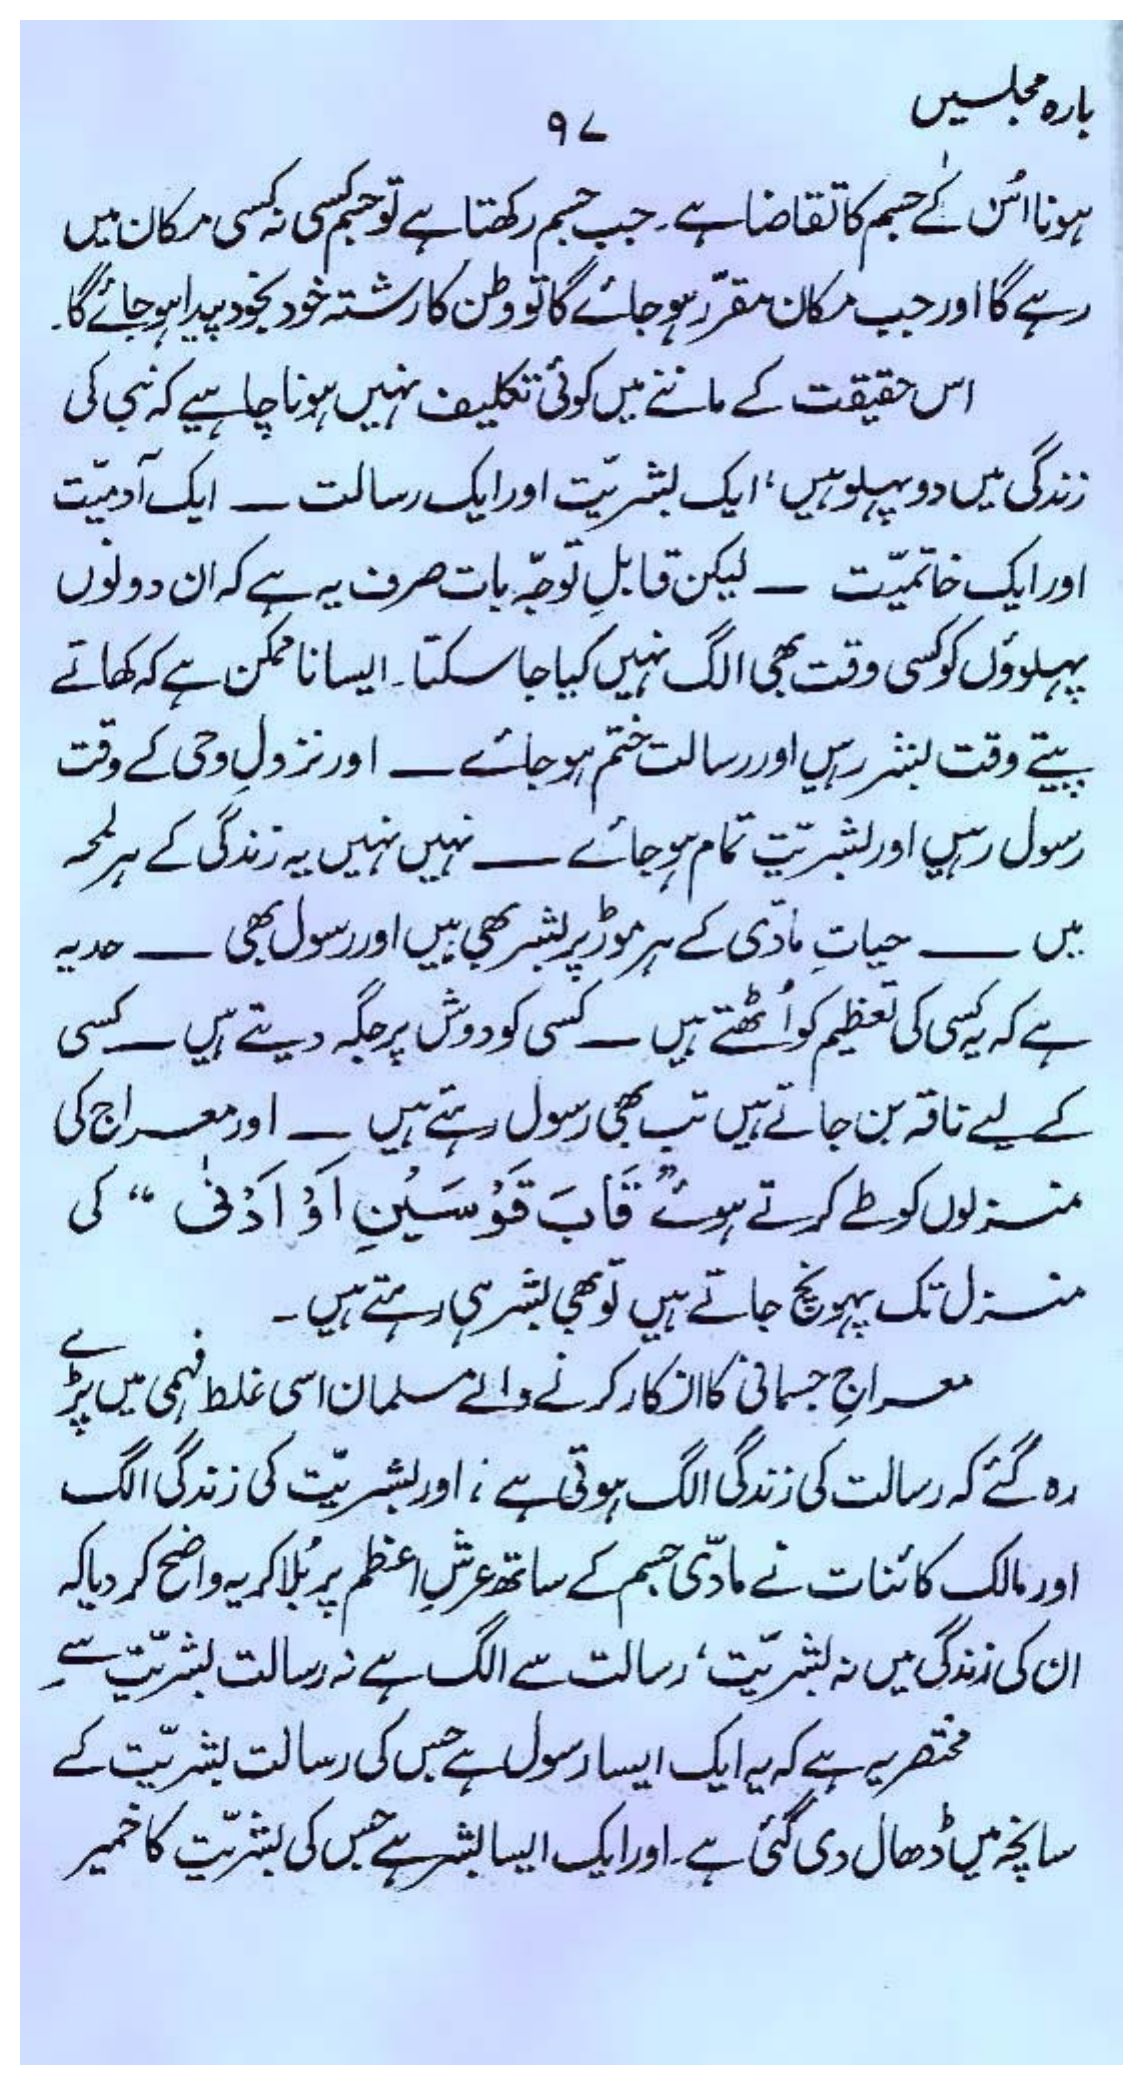 بارہ مجلسیں
۹۷
ہونا اُس کے جسم کا تقاضا ہے۔ جب جسم رکھتا ہے تو جسم کسی نہ کسی مکان میں
رہے گا اور جب مکان مقرّر ہو جائے گا تو وطن کا رشتہ خود بخود پیدا ہو جائے گا۔
اس حقیقت کے ماننے میں کوئی تکلیف نہیں ہونا چاہیے کہ نبی کی
زندگی میں دو پہلو ہیں، ایک بشریّت اور ایک رسالت ــ ایک آدمیّت
اور ایک خاتمیّت ــ لیکن قابلِ توجّہ بات صرف یہ ہے کہ ان دونوں
پہلووٴں کو کسی وقت بھی الگ نہیں کیا جا سکتا۔ ایسا ناممکن ہے کہ کھاتے
پیتے وقت بشر رہیں اور رسالت ختم ہو جائے ــ اور نزولِ وحی کے وقت
رسول رہیں اور بشریّت تمام ہو جائے ــ نہیں نہیں یہ زندگی کے ہر لمحہ
میں ــ حیاتِ مادّی کے ہر موڑ پر بشر بھی ہیں اور رسول بھی ــ حد یہ
ہے کہ یہ کسی کی تعظیم کو اُٹھتے ہیں ــ کسی کو دوش پر جگہ دیتے ہیں ــ کسی
کے لیے ناقہ بن جاتے ہیں تب بھی رسول رہتے ہیں ــ اور معراج کی
منزلوں کو طے کرتے ہوئے ”قَابَ قَوْسَیْنِ اَوْ اَدْنٰی“ کی
منزل تک پہونچ جاتے ہیں تو بھی بشر ہی رہتے ہیں ۔
معراجِ جسمانی کا انکار کرنے والے مسلمان اسی غلط فہمی میں پڑے
رہ گئے کہ رسالت کی زندگی الگ ہوتی ہے؛ اور بشریّت کی زندگی الگ
اور مالک کائنات نے مادّی جسم کے ساتھ عرشِ اعظم پر بُلا کر یہ واضح کر دیا کہ
ان کی زندگی میں نہ بشریّت، رسالت سے الگ ہے نہ رسالت بشریّت سے
مختصر یہ ہے کہ یہ ایک ایسا رسول ہے جس کی رسالت بشریّت کے
سانچہ میں ڈھال دی گئی ہے۔ اور ایک ایسا بشر ہے جس کی بشریّت کا خمیر